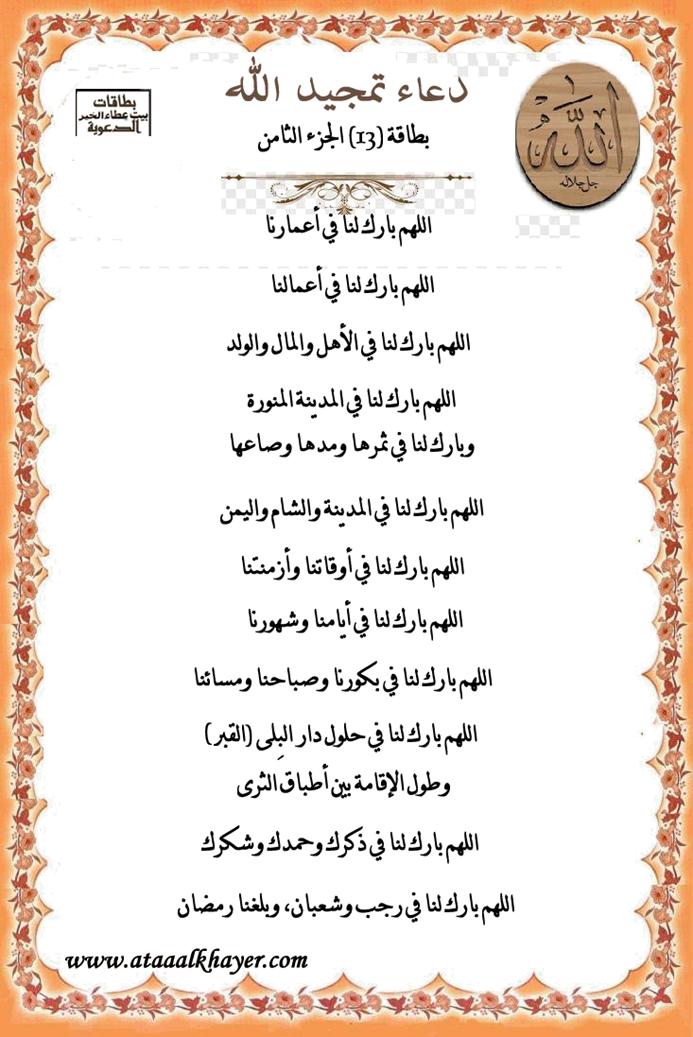 دعاء تمجيد الله
بطاقة (13) الجزء الثامن
بطاقات
بيت عطاء الخير
الدعوية
الله
جل جلاله
اللهم بارك لنا في أعمارنا
اللهم بارك لنا في أعمالنا
اللهم بارك لنا في الأهل والمال والولد
اللهم بارك لنا في المدينة المنورة
وبارك لنا في ثمرها ومدها وصاعها
اللهم بارك لنا في المدينة والشام واليمن
اللهم بارك لنا في أوقاتنا وأزمنتنا
اللهم بارك لنا في أيامنا وشهورنا
اللهم بارك لنا في بكورنا وصباحنا ومسائنا
اللهم بارك لنا في حلول دار البِلى (القبر)
وطول الإقامة بين أطباق الثرى
اللهم بارك لنا في ذكرك وحمدك وشكرك
اللهم بارك لنا في رجب وشعبان، وبلغنا رمضان
www.ataaalkhayer.com